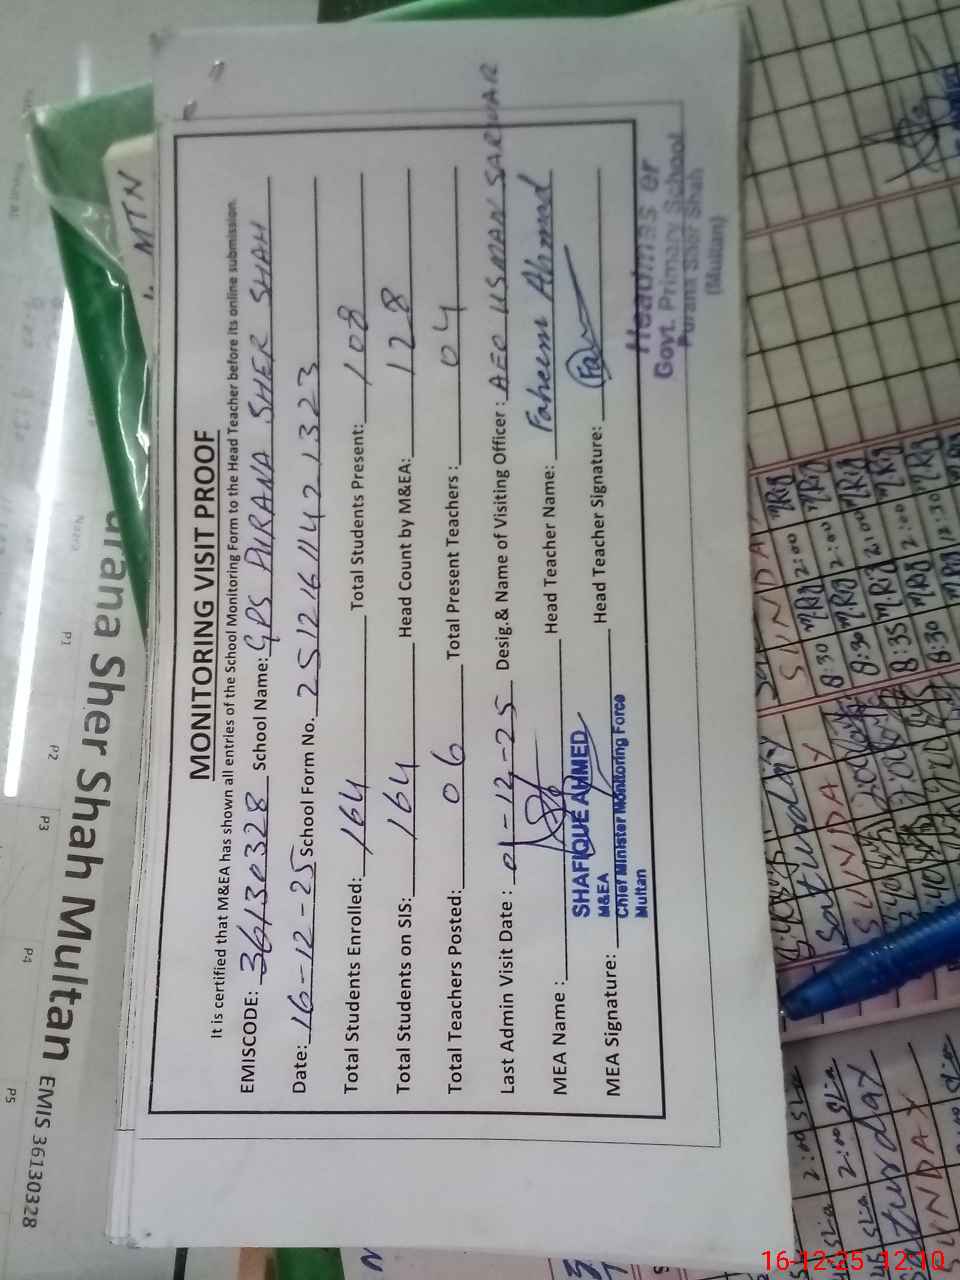 MONITORING VISIT PROOF
It is certified that M&EA has shown all entries of the School Monitoring Form to the Head Teacher before its online submission.
EMISCODE: 36130328 School Name: GPS PURANA SHER SHAH
Date: 16-12-25 School Form No. 251216114213 23
Total Students Enrolled: 164 Total Students Present: 108
Total Students on SIS: 164 Head Count by M&EA: 128
Total Teachers Posted: 06 Total Present Teachers : 04
Last Admin Visit Date : 01-12-25 Desig.& Name of Visiting Officer : AEO USMAN SARWAR
MEA Name : Head Teacher Name: Faheem Ahmad
SHAFIQUE AHMED
M&EA
Chief Minister Monitoring Force
Multan
MEA Signature: Head Teacher Signature:
Govt. Primary School
Purana Sher Shah
(Multan)
MTN
urana Sher Shah Multan EMIS 36130328
P1
P2
P3
P4
P5
Saturday
SUNDAY
SUNDAY
8:30 2:00
8:30 2:00
8:35 2:00
8:30 12:30
2:00
2:00
Saturday
SUNDAY
16-12-25 12:10